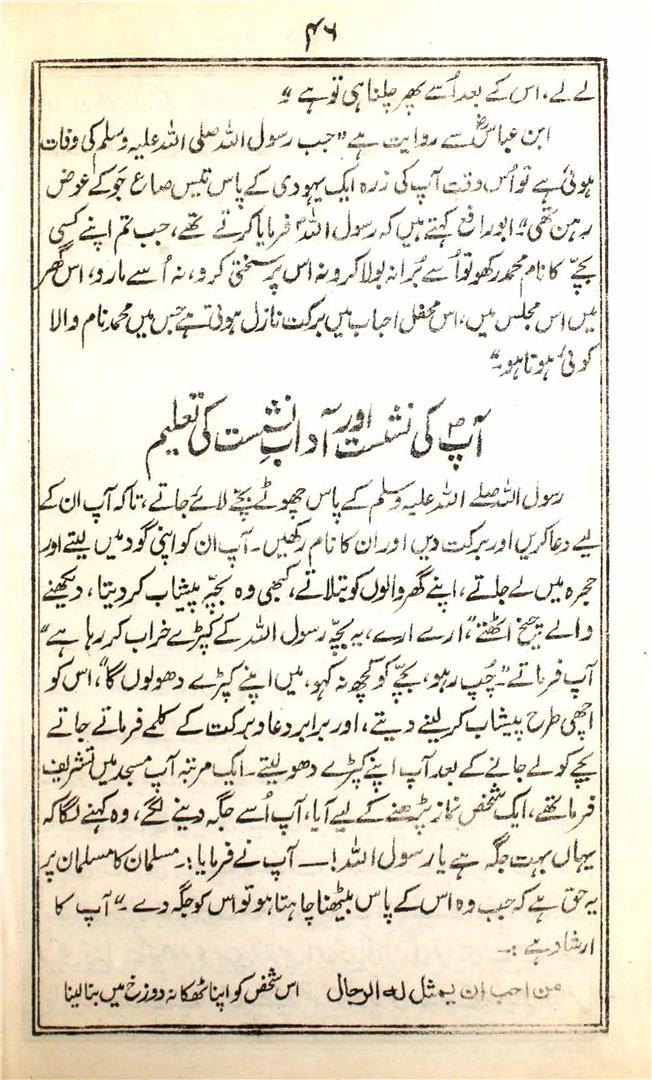 ۴۶
لے لے، اس کے بعد اُسے پھر چلنا ہی تو ہے "
ابن عباسؓ سے روایت ہے "جب رسول اللہ صلی اللہ علیہ وسلم کی وفات
ہوئی ہے تو اُس وقت آپ کی زرہ ایک یہودی کے پاس تیس صاع جَو کے عوض
رہن تھی" ابو رافع کہتے ہیں کہ رسول اللہؐ فرمایا کرتے تھے، جب تم اپنے کسی
بچّے کا نام محمد رکھو تو اُسے بُرا نہ بولا کرو نہ اس پر سختی کرو، نہ اُسے مارو، اس گھر
میں اس مجلس میں، اس محفل احباب میں برکت نازل ہوتی ہے جس میں محمد نام والا
کوئی ہوتا ہو۔"
آپؐ کی نشست اور آدابِ نشست کی تعلیم
رسول اللہ صلے اللہ علیہ وسلم کے پاس چھوٹے بچّے لائے جاتے، تاکہ آپ ان کے
لیے دعا کریں اور برکت دیں اور ان کا نام رکھیں۔ آپ ان کو اپنی گود میں لیتے اور
حجرہ میں لے جاتے، اپنے گھر والوں کو بتلاتے، کبھی وہ بچّہ پیشاب کر دیتا، دیکھنے
والے چیخ اٹھتے "ارے ارے، یہ بچّہ رسول اللہ کے کپڑے خراب کر رہا ہے"
آپ فرماتے "چُپ رہو، بچّے کو کچھ نہ کہو، میں اپنے کپڑے دھو لوں گا"، اس کو
اچھی طرح پیشاب کر لینے دیتے، اور برابر دعا و برکت کے کلمے فرماتے جاتے
بچے کو لے جانے کے بعد آپ اپنے کپڑے دھو لیتے۔ ایک مرتبہ آپ مسجد میں تشریف
فرما تھے، ایک شخص نماز پڑھنے کے لیے آیا، آپ اُسے جگہ دینے لگے، وہ کہنے لگا کہ
یہاں بہت جگہ ہے یا رسول اللہ! — آپ نے فرمایا:۔ مسلمان کا مسلمان پر
یہ حق ہے کہ جب وہ اس کے پاس بیٹھنا چاہتا ہو تو اس کو جگہ دے۔" آپ کا
ارشاد ہے :۔
من احب ان یمثل لہ الرحال اس شخص کو اپنا ٹھکانہ دوزخ میں بنا لینا